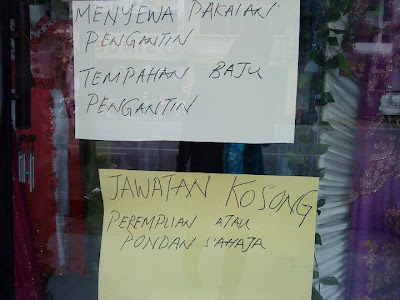 MENYEWA PAKAIAN
PENGANTIN
TEMPAHAN BAJU
PENGANTIN
JAWATAN KOSONG
PEREMPUAN ATAU
PONDAN SAHAJA